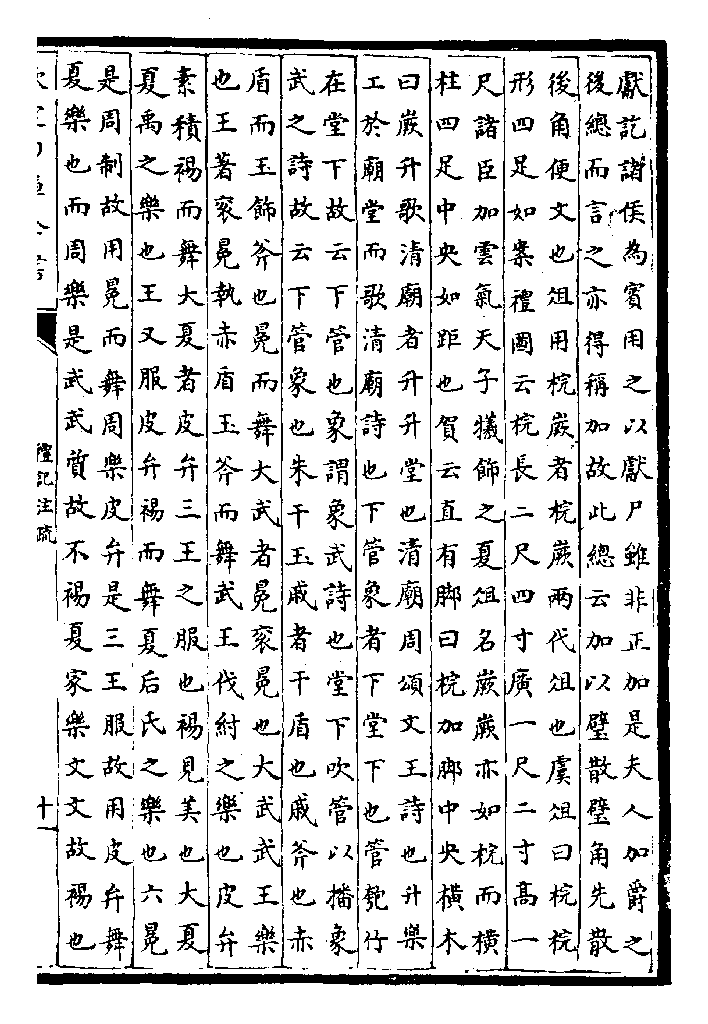 獻訖諸侯為賓用之以獻尸雖非正加是夫人加爵之
後總而言之亦得稱加故此總云加以璧散璧角先散
後角便文也俎用梡嶡者梡嶡兩代俎也虞俎曰梡梡
形四足如案禮圖云梡長二尺四寸廣一尺二寸高一
尺諸臣加雲氣天子犧飾之夏俎名嶡嶡亦如梡而橫
柱四足中央如距也賀云直有脚曰梡加脚中央橫木
曰嶡升歌清廟者升升堂也清廟周頌文王詩也升樂
工於廟堂而歌清廟詩也下管象者下堂下也管匏竹
在堂下故云下管也象謂象武詩也堂下吹管以播象
武之詩故云下管象也朱干玉戚者干盾也戚斧也赤
盾而玉飾斧也冕而舞大武者冕衮冕也大武武王樂
也王著衮冕執赤盾玉斧而舞武王伐紂之樂也皮弁
素積裼而舞大夏者皮弁三王之服也裼見美也大夏
夏禹之樂也王又服皮弁裼而舞夏后氏之樂也六冕
是周制故用冕而舞周樂皮弁是三王服故用皮弁舞
夏樂也而周樂是武武質故不裼夏家樂文文故裼也
禮記注疏